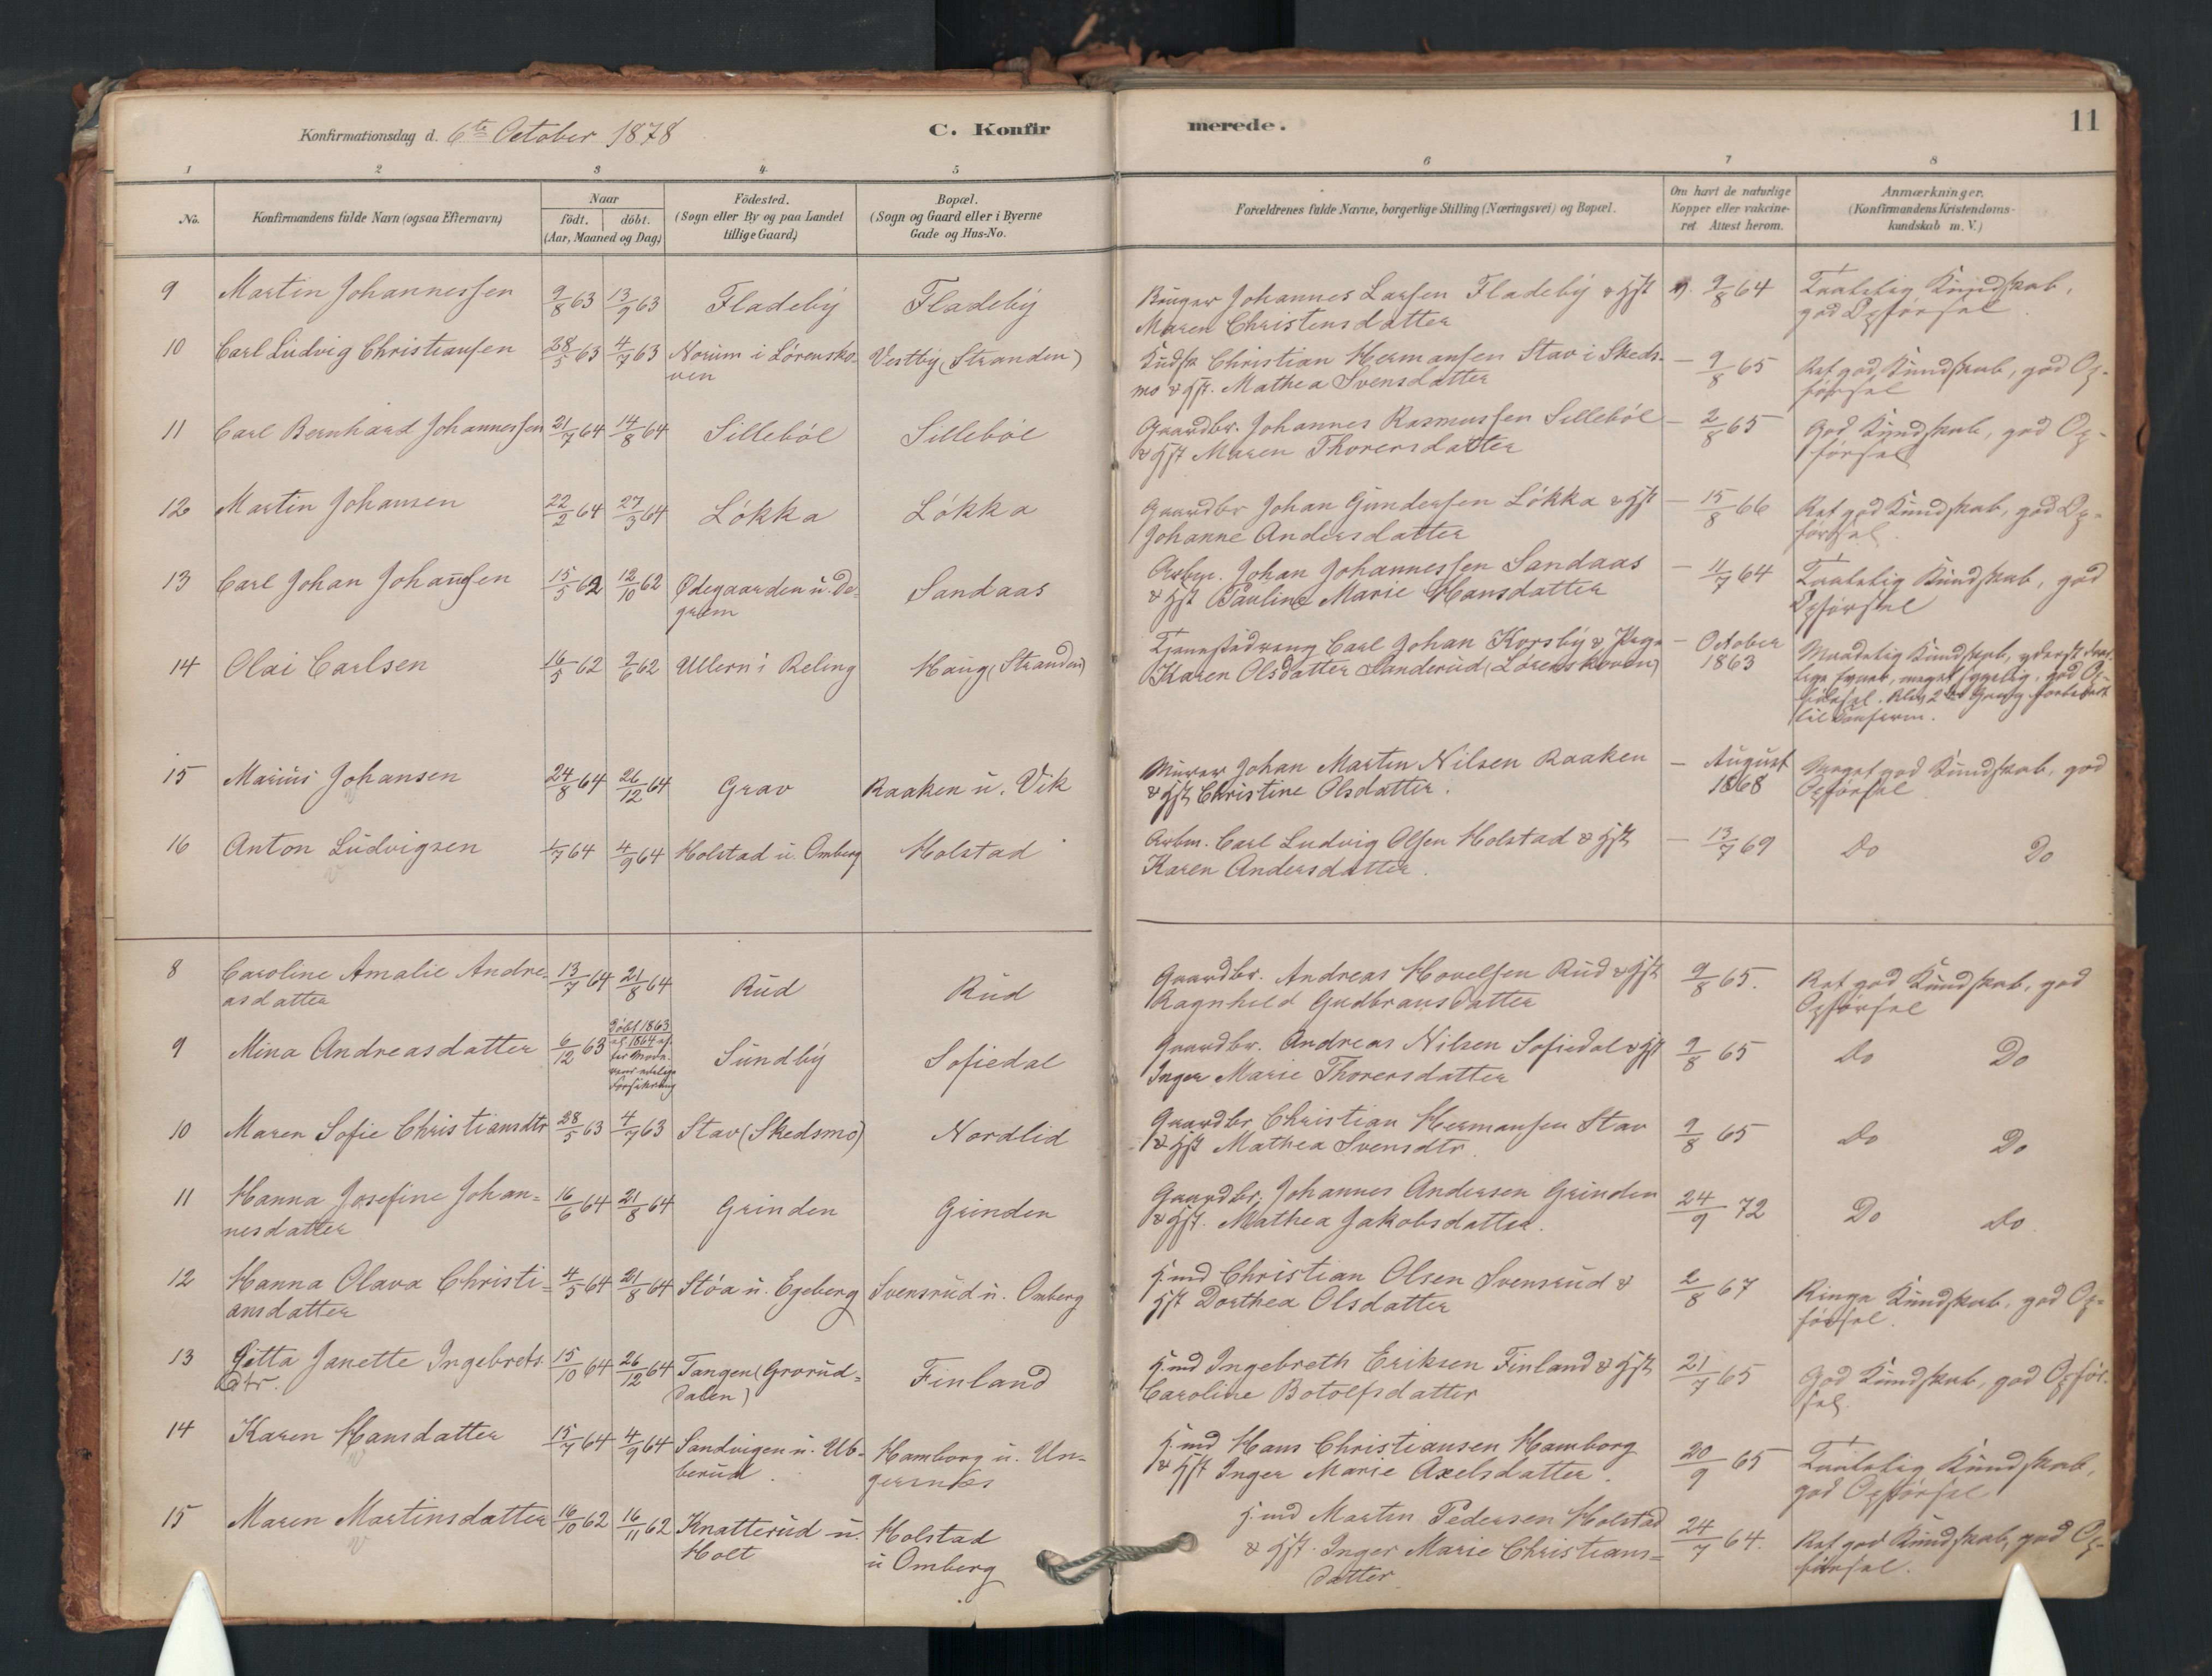 Konfirmationsdag d. 6te October 1878
C. Konfirmerede.
11
1 2 3 4 5 6 7 8
No.
Konfirmandens fulde Navn (ogsaa Efternavn)
Naar
födt. döbt.
(Aar, Maaned og Dag.)
Födested.
(Sogn eller By og paa Landet
tillige Gaard)
Bopæl.
(Sogn og Gaard eller i Byerne
Gade og Hus-No.
Forældrenes fulde Navne, borgerlige Stilling (Næringsvei) og Bopæl.
Om havt de naturlige
Kopper eller vakcine-
ret Attest herom.
Anmærkninger.
(Konfirmandens Kristendoms-
kundskab m. V.)
9 Martin Johannessen 9/8 63 13/9 63 Fladeby Fladeby Johannes Larsen Fladeby & Hst v. 9/8 64 Taalelig Kundskab,
Maren Christensdatter god Opførsel.
10 Carl Ludvig Christiansen 28/5 63 4/7 63 Norum i Lørensko- Vestby (Stranden) Christian Hermansen Stav i Skeds- — 9/8 65 Ret god Kundskab, god Op-
ven mo & Hst. Mathea Svensdatter førsel
11 Carl Bernhard Johannessen 21/7 64 14/8 64 Silleböl Silleböl Gaardbr. Johannes Rasmussen Silleböl — 2/8 65 God Kundskab, god Op-
& Hst Maren Thorersdatter førsel
12 Martin Johansen 22/2 64 27/3 64 Løkka Løkka Gaardbr Johan Gundersen Løkka & Hst — 15/8 66 Ret god Kundskab, god Op-
Johanne Andersdatter førsel.
13 Carl Johan Johansen 15/5 62 12/10 62 Ødegaarden u. De- Sandaas Arbm. Johan Johannessen Sandaas — 11/7 64 Taalelig Kundskab, god
grum & Hst Pauline Marie Hansdatter Opførsel
14 Olai Carlsen 16/5 62 9/6 62 Ullern i Reling Haug (Stranden) Tjenestedreng Carl Johan Korsby & Pige — October Maadelig Kundskab, yderst
Karen Olsdatter Sanderud (Lørenskoven) 1863 meget sygelig, god Op-
førsel. Blev 2den Gang forberedt
til Konfirm.
15 Marius Johansen 24/8 64 26/12 64 Grav Raaken u. Vik Murer Johan Martin Nilsen Raaken — August Meget god Kundskab, god
& Hst Christine Olsdatter. 1868 Opførsel
16 Anton Ludvigsen 1/7 64 4/9 64 Holstad u. Omberg Holstad Arbm. Carl Ludvig Olsen Holstad & Hst — 13/7 69 Do Do
Karen Andersdatter.
8 Caroline Amalie Andre- 13/7 64 21/8 64 Rud Rud Gaardbr. Andreas Hovelsen Rud & Hst 9/8 65. Ret god Kundskab, god
asdatter Ragnhild Gudbransdatter Opførsel
9 Mina Andreasdatter 6/12 63 Döbt 1863
el 1864 ef-
ter Mode-
rens edelige
Forsikring Sundby Sofiedal Gaardbr. Andreas Nilsen Sofiedal & Hst 9/8 65 Do Do
Inger Marie Thorersdatter
10 Maren Sofie Christiansdtr 28/5 63 4/7 63 Stav (Skedsmo) Nordlid Gaardbr Christian Hermansen Stav 9/8 65 Do Do
& Hst Mathea Svensdtr.
11 Hanna Josefine Johan= 16/6 64 21/8 64 Grinden Grinden Gaardbr. Johannes Andersen Grinden 24/9 72 Do Do
nesdatter & Hst. Mathea Jakobsdatter.
12 Hanna Olava Christi= 4/5 64 21/8 64 Stöa u. Egeberg Svensrud u. Omberg H.md Christian Olsen Svensrud & 2/8 67 Ringe Kundskab, god Op-
ansdatter Hst Dorthea Olsdatter førsel.
13 Gitta Janette Ingebrets 15/10 64 26/12 64 Tangen (Grorud= Finland H.md Ingebreth Eriksen Finland & Hst 21/7 65 God Kundskab, god Opför-
dtr. dalen) Caroline Botolfsdatter sel.
14 Karen Hansdatter 15/7 64 4/9 64 Sandvigen u. Ub- Hamborg u. Un- H.md Hans Christiansen Hamborg 20/9 65 Taalelig Kundskab,
berud. gersnes & Hst Inger Marie Axelsdatter. god Opførsel
15 Maren Martinsdatter 16/10 62 16/11 62 Knatterud u. Holstad H.md Martin Pedersen Holstad 24/7 64. Ret god Kundskab, god Op-
Holt u Omberg & Hst. Inger Marie Christians= førsel.
datter.